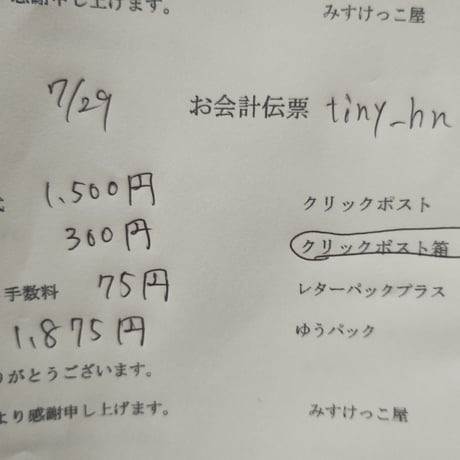 感謝申し上げます。 みすけっこ屋
7/29 お会計伝票 tiny_hn
1,500円 クリックポスト
300円 クリックポスト箱
手数料 75円 レターパックプラス
1,875円 ゆうパック
りがとうございます。
より感謝申し上げます。 みすけっこ屋